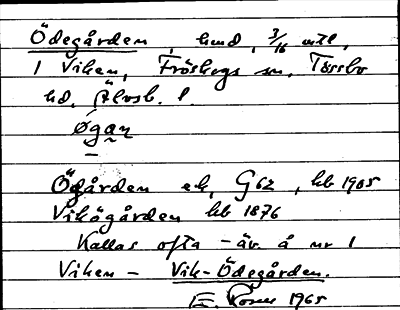 Ödegården, hmd, 3/16 mtl,
1 Viken, Fröskogs sn, Tössbo
hd, Älvsb. l.
øgaṇ
Ögården ek, G62, kb 1905
Vikögården kb 1876
Kallas ofta - äv. å nr 1
Viken - Vik-Ödegården.
1965